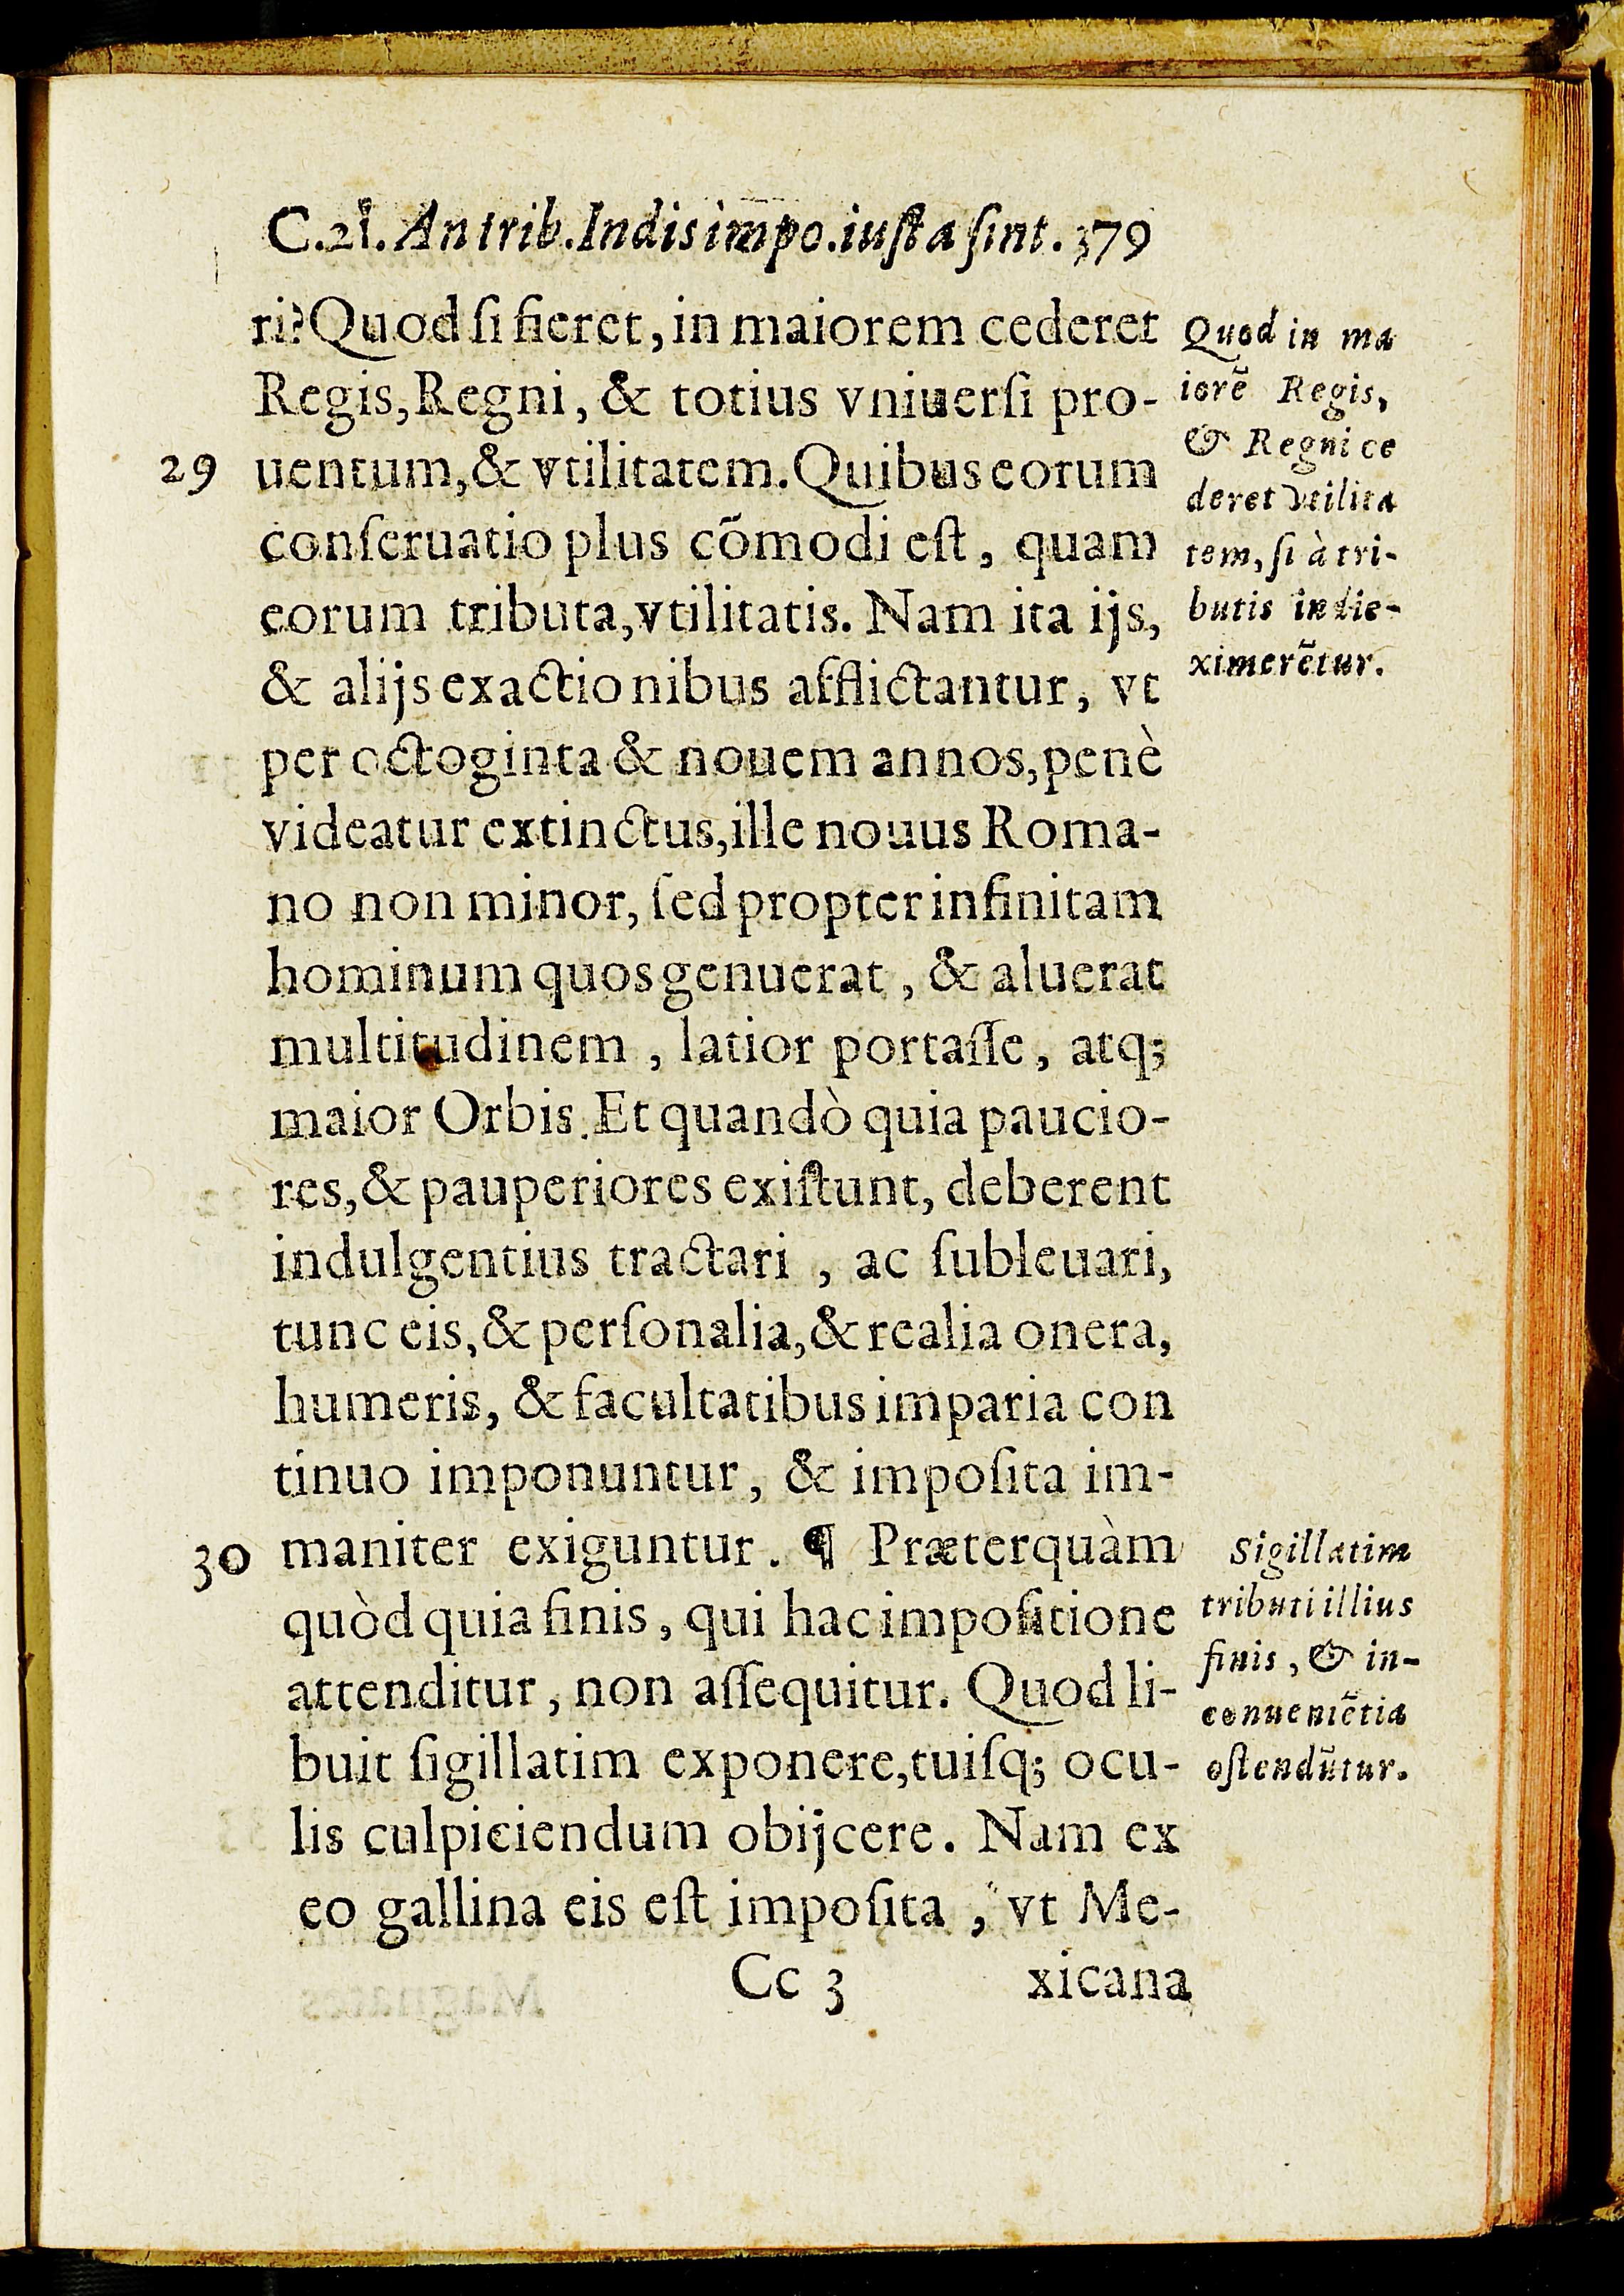 C.21. An trib. Indis impo. iusta sint. 379
ri? Quod si fieret, in maiorem cederet
Regis, Regni, & totius vniuersi pro-
29 uentum, & vtilitatem. Quibus eorum
conseruatio plus cõmodi est, quam
eorum tributa, vtilitatis. Nam ita ijs,
& alijs exactionibus afflictantur, vt
per octoginta & nouem annos, penè
videatur extinctus, ille nouus Roma-
no non minor, sed propter infinitam
hominum quos genuerat, & aluerat
multitudinem, latior portasse, atq;
maior Orbis. Et quandò quia paucio-
res, & pauperiores existunt, deberent
indulgentius tractari, ac subleuari,
tunc eis, & personalia, & realia onera,
humeris, & facultatibus imparia con
tinuo imponuntur, & imposita im-
30 maniter exiguntur. ¶ Præterquàm
quòd quia finis, qui hac impositione
attenditur, non assequitur. Quod li-
buit sigillatim exponere, tuisq; ocu-
lis culpiciendum obijcere. Nam ex
eo gallina eis est imposita, vt Me-
Cc 3 xicana
Quod in ma
iorẽ Regis,
& Regni ce
deret vtilita
tem, si à tri-
butis indie-
ximerẽtur.
Sigillatim
tributi illius
finis, & in-
conueniẽtia
ostendũtur.